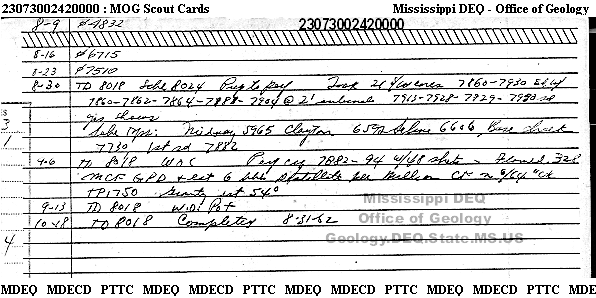 23073002420000 : MOG Scout Cards Mississippi DEQ - Office of Geology
8-9 @4832 23073002420000
8-16 @6715
8-23 @7510
8-30 TD 8018 Schl 8024 Prep to pay Took 24 cores 7860-7930
7860-7862-7864-7888-7904 @ 2' intervals 7913-7928-7929-7930 sd
gas shows
Schl tops: Midway 5965 Clayton Selma 6606 Base chalk
7730 1st sd 7882
9-6 TD 8018 WOC 7882-94 w/48 shots - 328
MCF GPD + est 6 bbls distillate per million CF on 9/64" ck
TP1750 Gravity est 54°
9-13 TD 8018 W.O. Pot
10-18 TD 8018 Completed 8-31-62
3
1
4
Mississippi DEQ
Office of Geology
Geology.DEQ.State.MS.US
MDEQ MDECD PTTC MDEQ MDECD PTTC MDEQ MDECD PTTC MDEQ MDECD